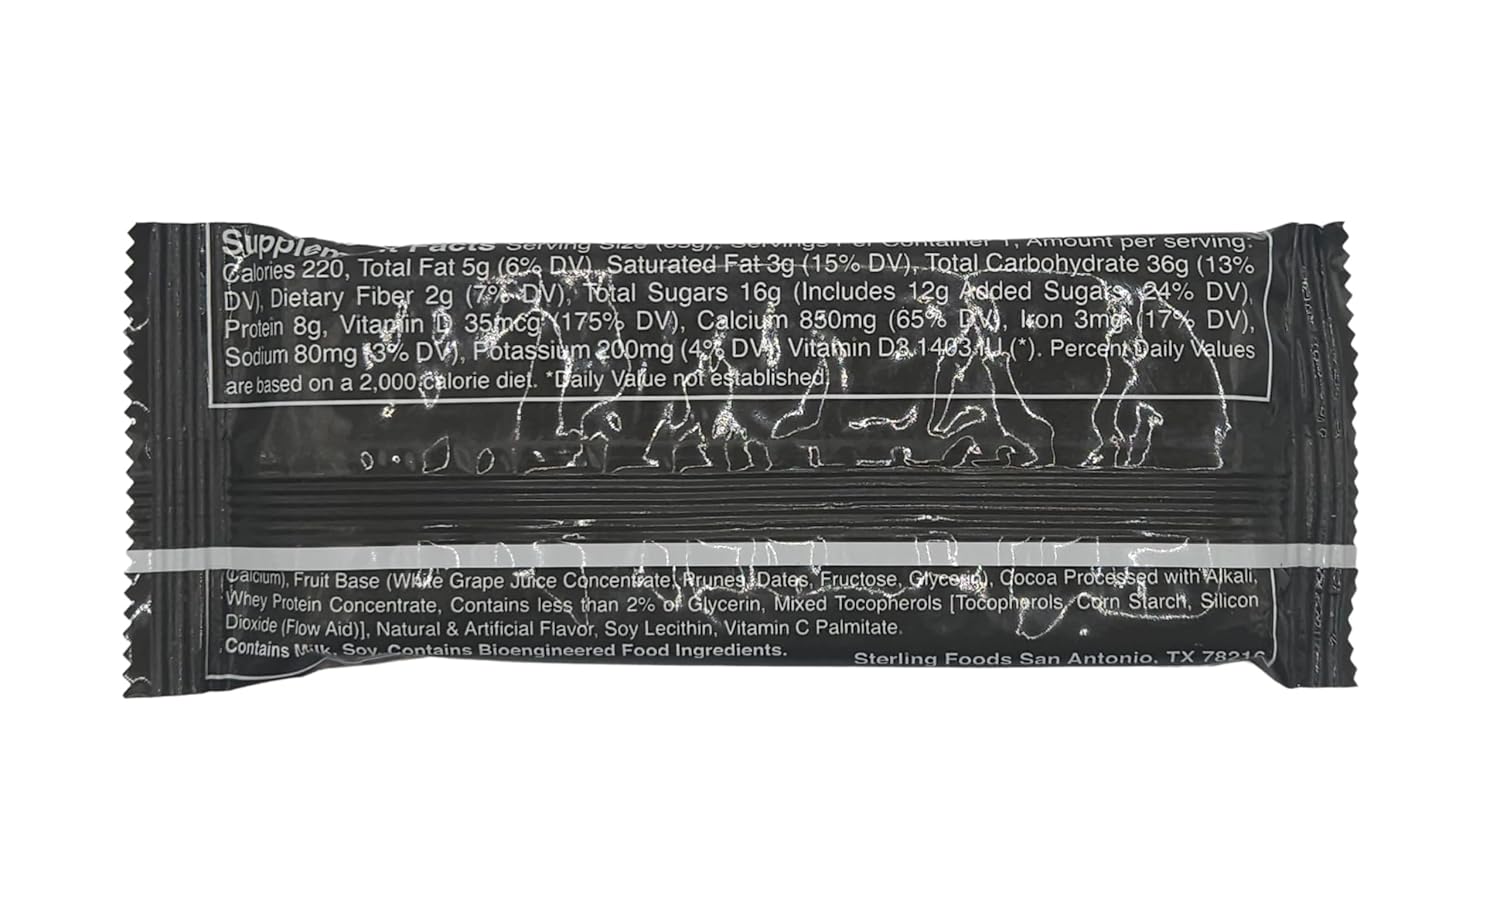 Supplement Facts Serving Size (65g). Servings Per Container 1, Amount per serving:
Calories 220, Total Fat 5g (6% DV), Saturated Fat 3g (15% DV), Total Carbohydrate 36g (13%
DV), Dietary Fiber 2g (7% DV), Total Sugars 16g (Includes 12g Added Sugars, 24% DV),
Protein 8g, Vitamin D 35mcg (175% DV), Calcium 850mg (65% DV), Iron 3mg (17% DV),
Sodium 80mg (3% DV), Potassium 200mg (4% DV) Vitamin D3 1403 IU (*). Percent Daily Values
are based on a 2,000 calorie diet. *Daily Value not established.
Calcium), Fruit Base (White Grape Juice Concentrate, Prunes, Dates, Fructose, Glycerin), Cocoa Processed with Alkali,
Whey Protein Concentrate, Contains less than 2% of Glycerin, Mixed Tocopherols [Tocopherols, Corn Starch, Silicon
Dioxide (Flow Aid)], Natural & Artificial Flavor, Soy Lecithin, Vitamin C Palmitate.
Contains Milk, Soy. Contains Bioengineered Food Ingredients.
Sterling Foods San Antonio, TX 78216